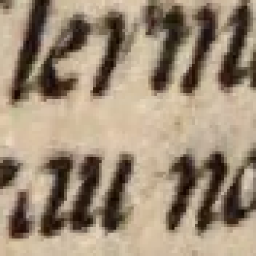 lerm
au no